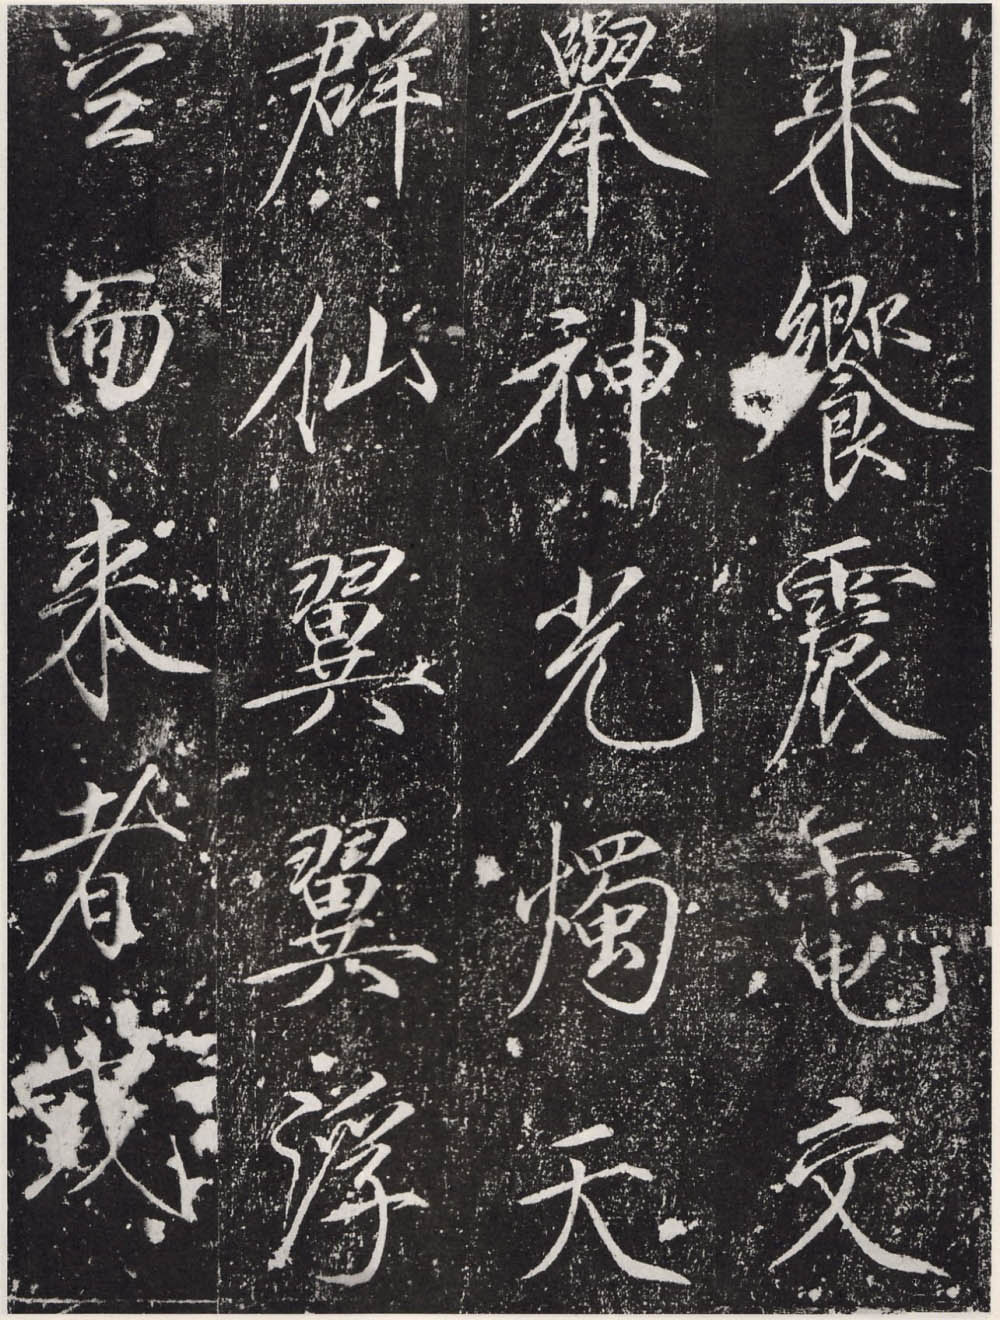 来饗震電交
舉神光燭天
群仙翼翼浮
空而来者或